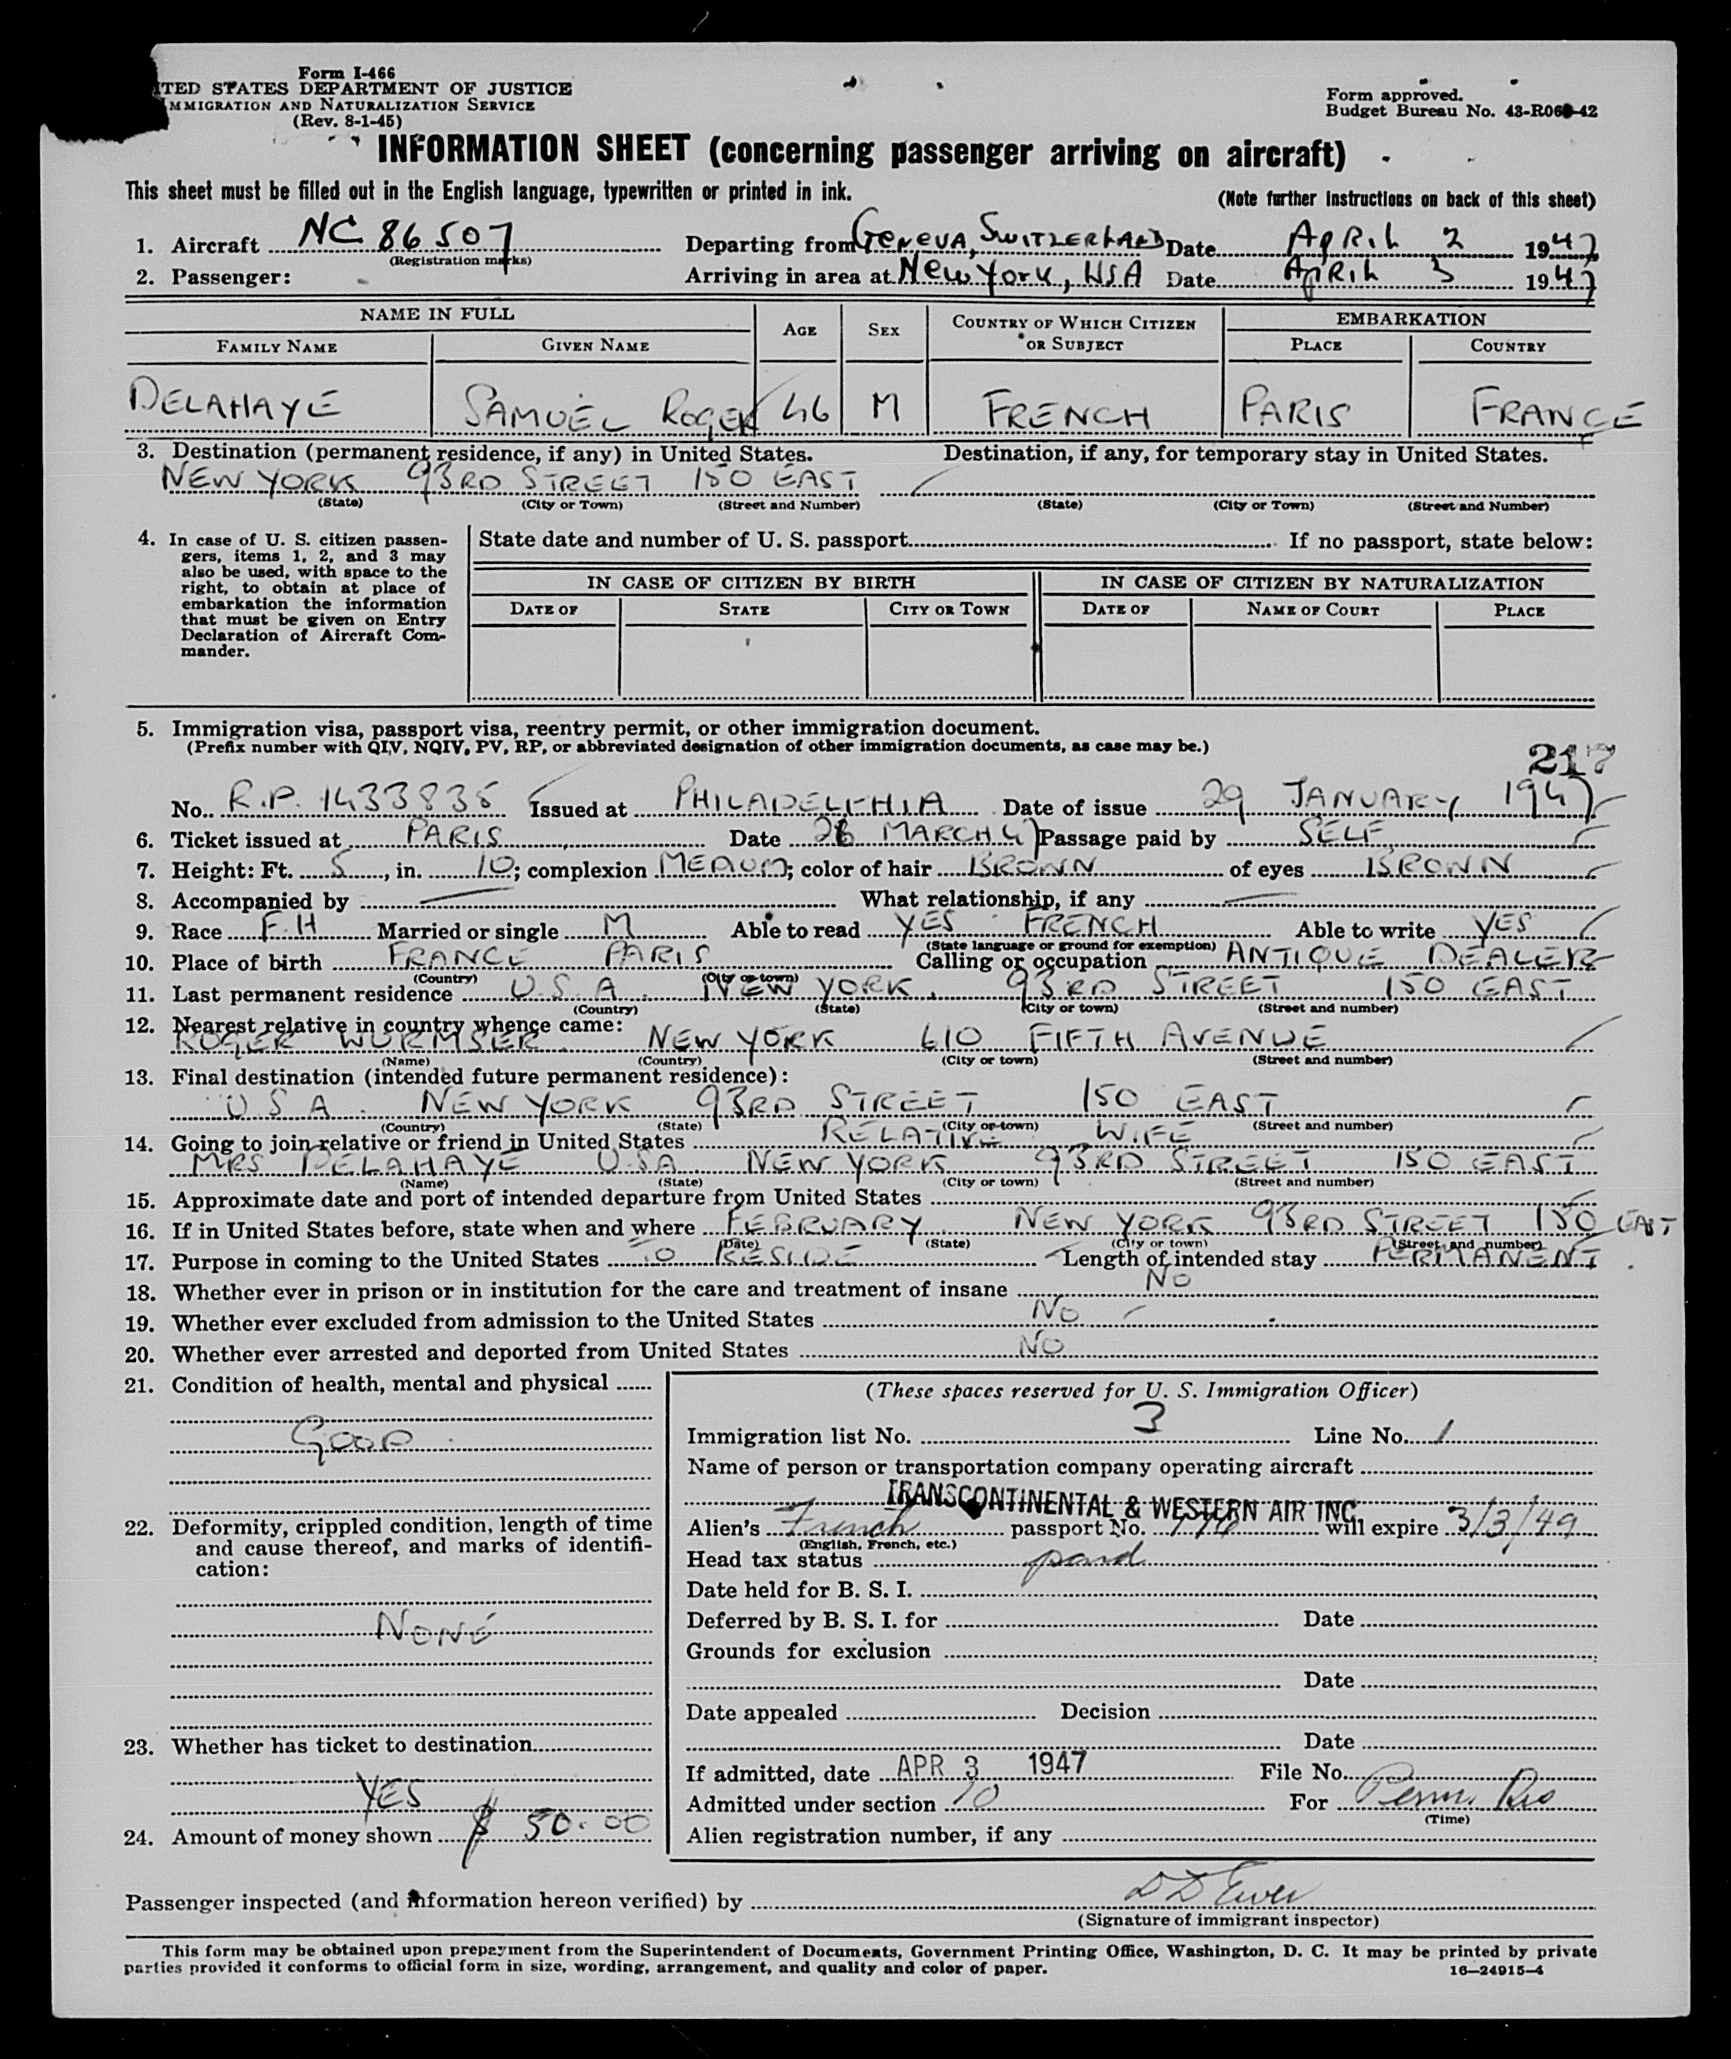 Form I-466
ITED STATES DEPARTMENT OF JUSTICE
MMIGRATION AND NATURALIZATION SERVICE
(Rev. 8-1-45)
Form approved.
Budget Bureau No. 43-R06 -42
INFORMATION SHEET (concerning passenger arriving on aircraft)
This sheet must be filled out in the English language, typewritten or printed in ink.
(Note further instructions on back of this sheet)
1. Aircraft NC 86507 Departing from GENEVA, SWITZERLAND Date APRIL 2 1947
(Registration marks)
2. Passenger: Arriving in area at New York, USA Date APRIL 3 1947
NAME IN FULL AGE SEX COUNTRY OF WHICH CITIZEN OR SUBJECT EMBARKATION
FAMILY NAME GIVEN NAME PLACE COUNTRY
DELAHAYE SAMUEL ROGER 46 M FRENCH PARIS FRANCE
3. Destination (permanent residence, if any) in United States. Destination, if any, for temporary stay in United States.
NEW YORK 93RD STREET 150 EAST
(State) (City or Town) (Street and Number) (State) (City or Town) (Street and Number)
4. In case of U. S. citizen passengers, items 1, 2, and 3 may also be used, with space to the right, to obtain at place of embarkation the information that must be given on Entry Declaration of Aircraft Commander.
State date and number of U. S. passport If no passport, state below:
IN CASE OF CITIZEN BY BIRTH IN CASE OF CITIZEN BY NATURALIZATION
DATE OF STATE CITY OR TOWN DATE OF NAME OF COURT PLACE
5. Immigration visa, passport visa, reentry permit, or other immigration document.
(Prefix number with QIV, NQIV, PV, RP, or abbreviated designation of other immigration documents, as case may be.)
217
No. R.P. 1433835 Issued at PHILADELPHIA Date of issue 29 JANUARY 1947
6. Ticket issued at PARIS Date 26 MARCH 47 Passage paid by SELF
7. Height: Ft. 5, in. 10; complexion MEDIUM; color of hair BROWN of eyes BROWN
8. Accompanied by What relationship, if any
9. Race F.H Married or single M Able to read YES FRENCH Able to write YES
(State language or ground for exemption)
10. Place of birth FRANCE PARIS Calling or occupation ANTIQUE DEALER
(Country) (City or town)
11. Last permanent residence U.S.A. NEW YORK. 93RD STREET 150 EAST
(Country) (State) (City or town) (Street and number)
12. Nearest relative in country whence came:
ROGER WURMSER NEW YORK 610 FIFTH AVENUE
(Name) (Country) (City or town) (Street and number)
13. Final destination (intended future permanent residence):
U.S.A. NEW YORK 93RD STREET 150 EAST
(Country) (State) (City or town) (Street and number)
14. Going to join relative or friend in United States RELATIVE WIFE
MRS DELAHAYE U.S.A. NEW YORK 93RD STREET 150 EAST
(Name) (State) (City or town) (Street and number)
15. Approximate date and port of intended departure from United States
16. If in United States before, state when and where FEBRUARY. NEW YORK 93RD STREET 150 EAST
(Date) (State) (City or town) (Street and number)
17. Purpose in coming to the United States TO RESIDE Length of intended stay PERMANENT
18. Whether ever in prison or in institution for the care and treatment of insane NO
19. Whether ever excluded from admission to the United States NO
20. Whether ever arrested and deported from United States NO
21. Condition of health, mental and physical
GOOD
22. Deformity, crippled condition, length of time and cause thereof, and marks of identification:
NONE
23. Whether has ticket to destination
YES
24. Amount of money shown $ 50.00
(These spaces reserved for U. S. Immigration Officer)
Immigration list No. 3 Line No. 1
Name of person or transportation company operating aircraft
TRANSCONTINENTAL & WESTERN AIR INC
Alien's French passport No. will expire 3/3/49
(English, French, etc.)
Head tax status paid
Date held for B. S. I.
Deferred by B. S. I. for Date
Grounds for exclusion
Date
Date appealed Decision
Date
If admitted, date APR 3 1947 File No.
Admitted under section 10 For Perm. Res
(Time)
Alien registration number, if any
Passenger inspected (and information hereon verified) by
(Signature of immigrant inspector)
This form may be obtained upon prepayment from the Superintendent of Documents, Government Printing Office, Washington, D. C. It may be printed by private
parties provided it conforms to official form in size, wording, arrangement, and quality and color of paper.
16—24915-4